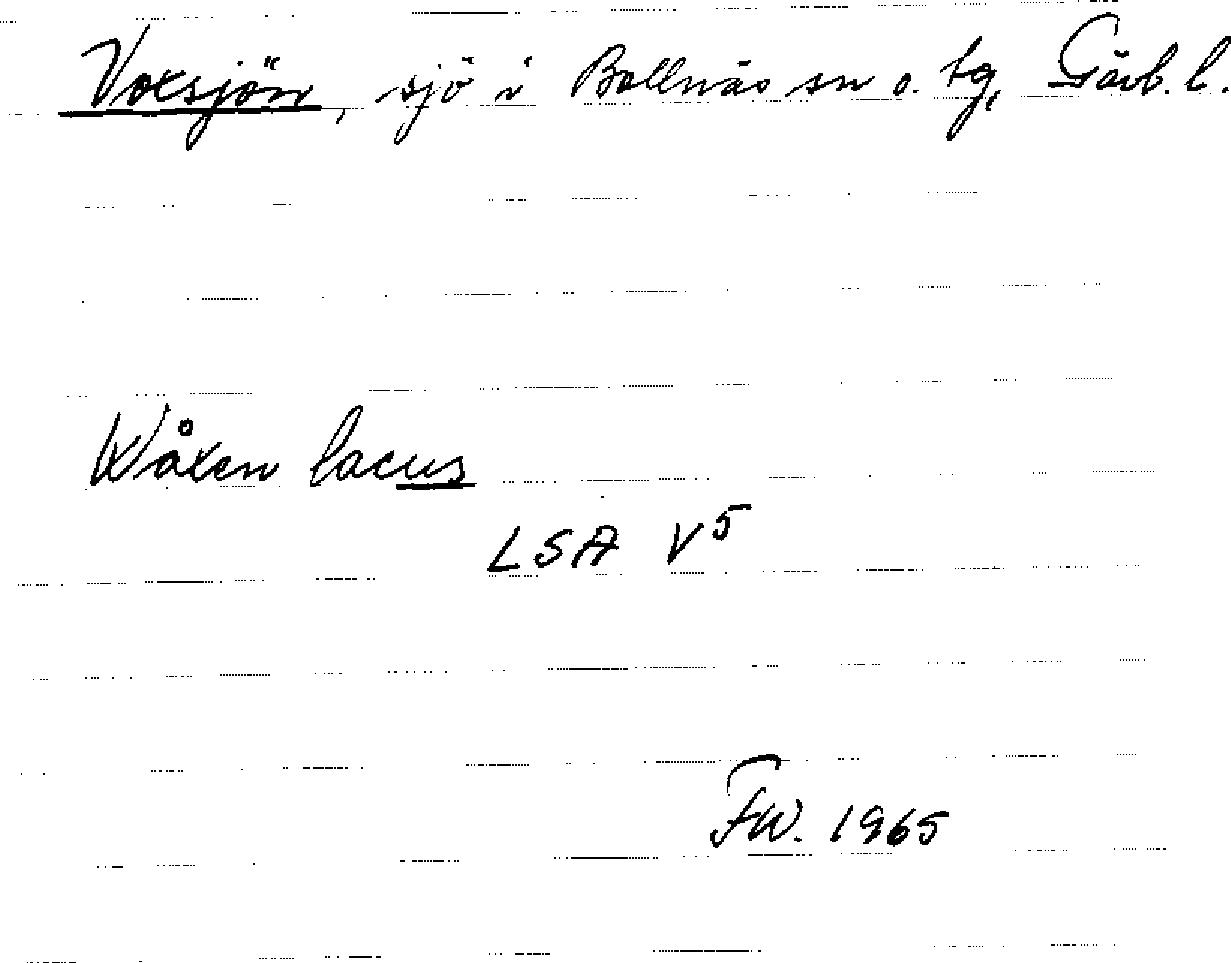 Voxsjön, sjö i Bollnäs sn o. tg, Gävb. l.
Wåxen lacus
LSA V5
FW. 1965